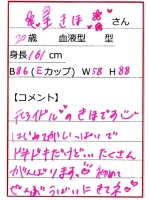 愛星きほ さん
20歳 血液型 型
身長161cm
B86(Eカップ) W58 H88
【コメント】
元アイドルのきほです
はじめてがいっぱいで
ドキドキだけどいたくさん
がんばります 初めて
ぜんぶうばいにきてネ